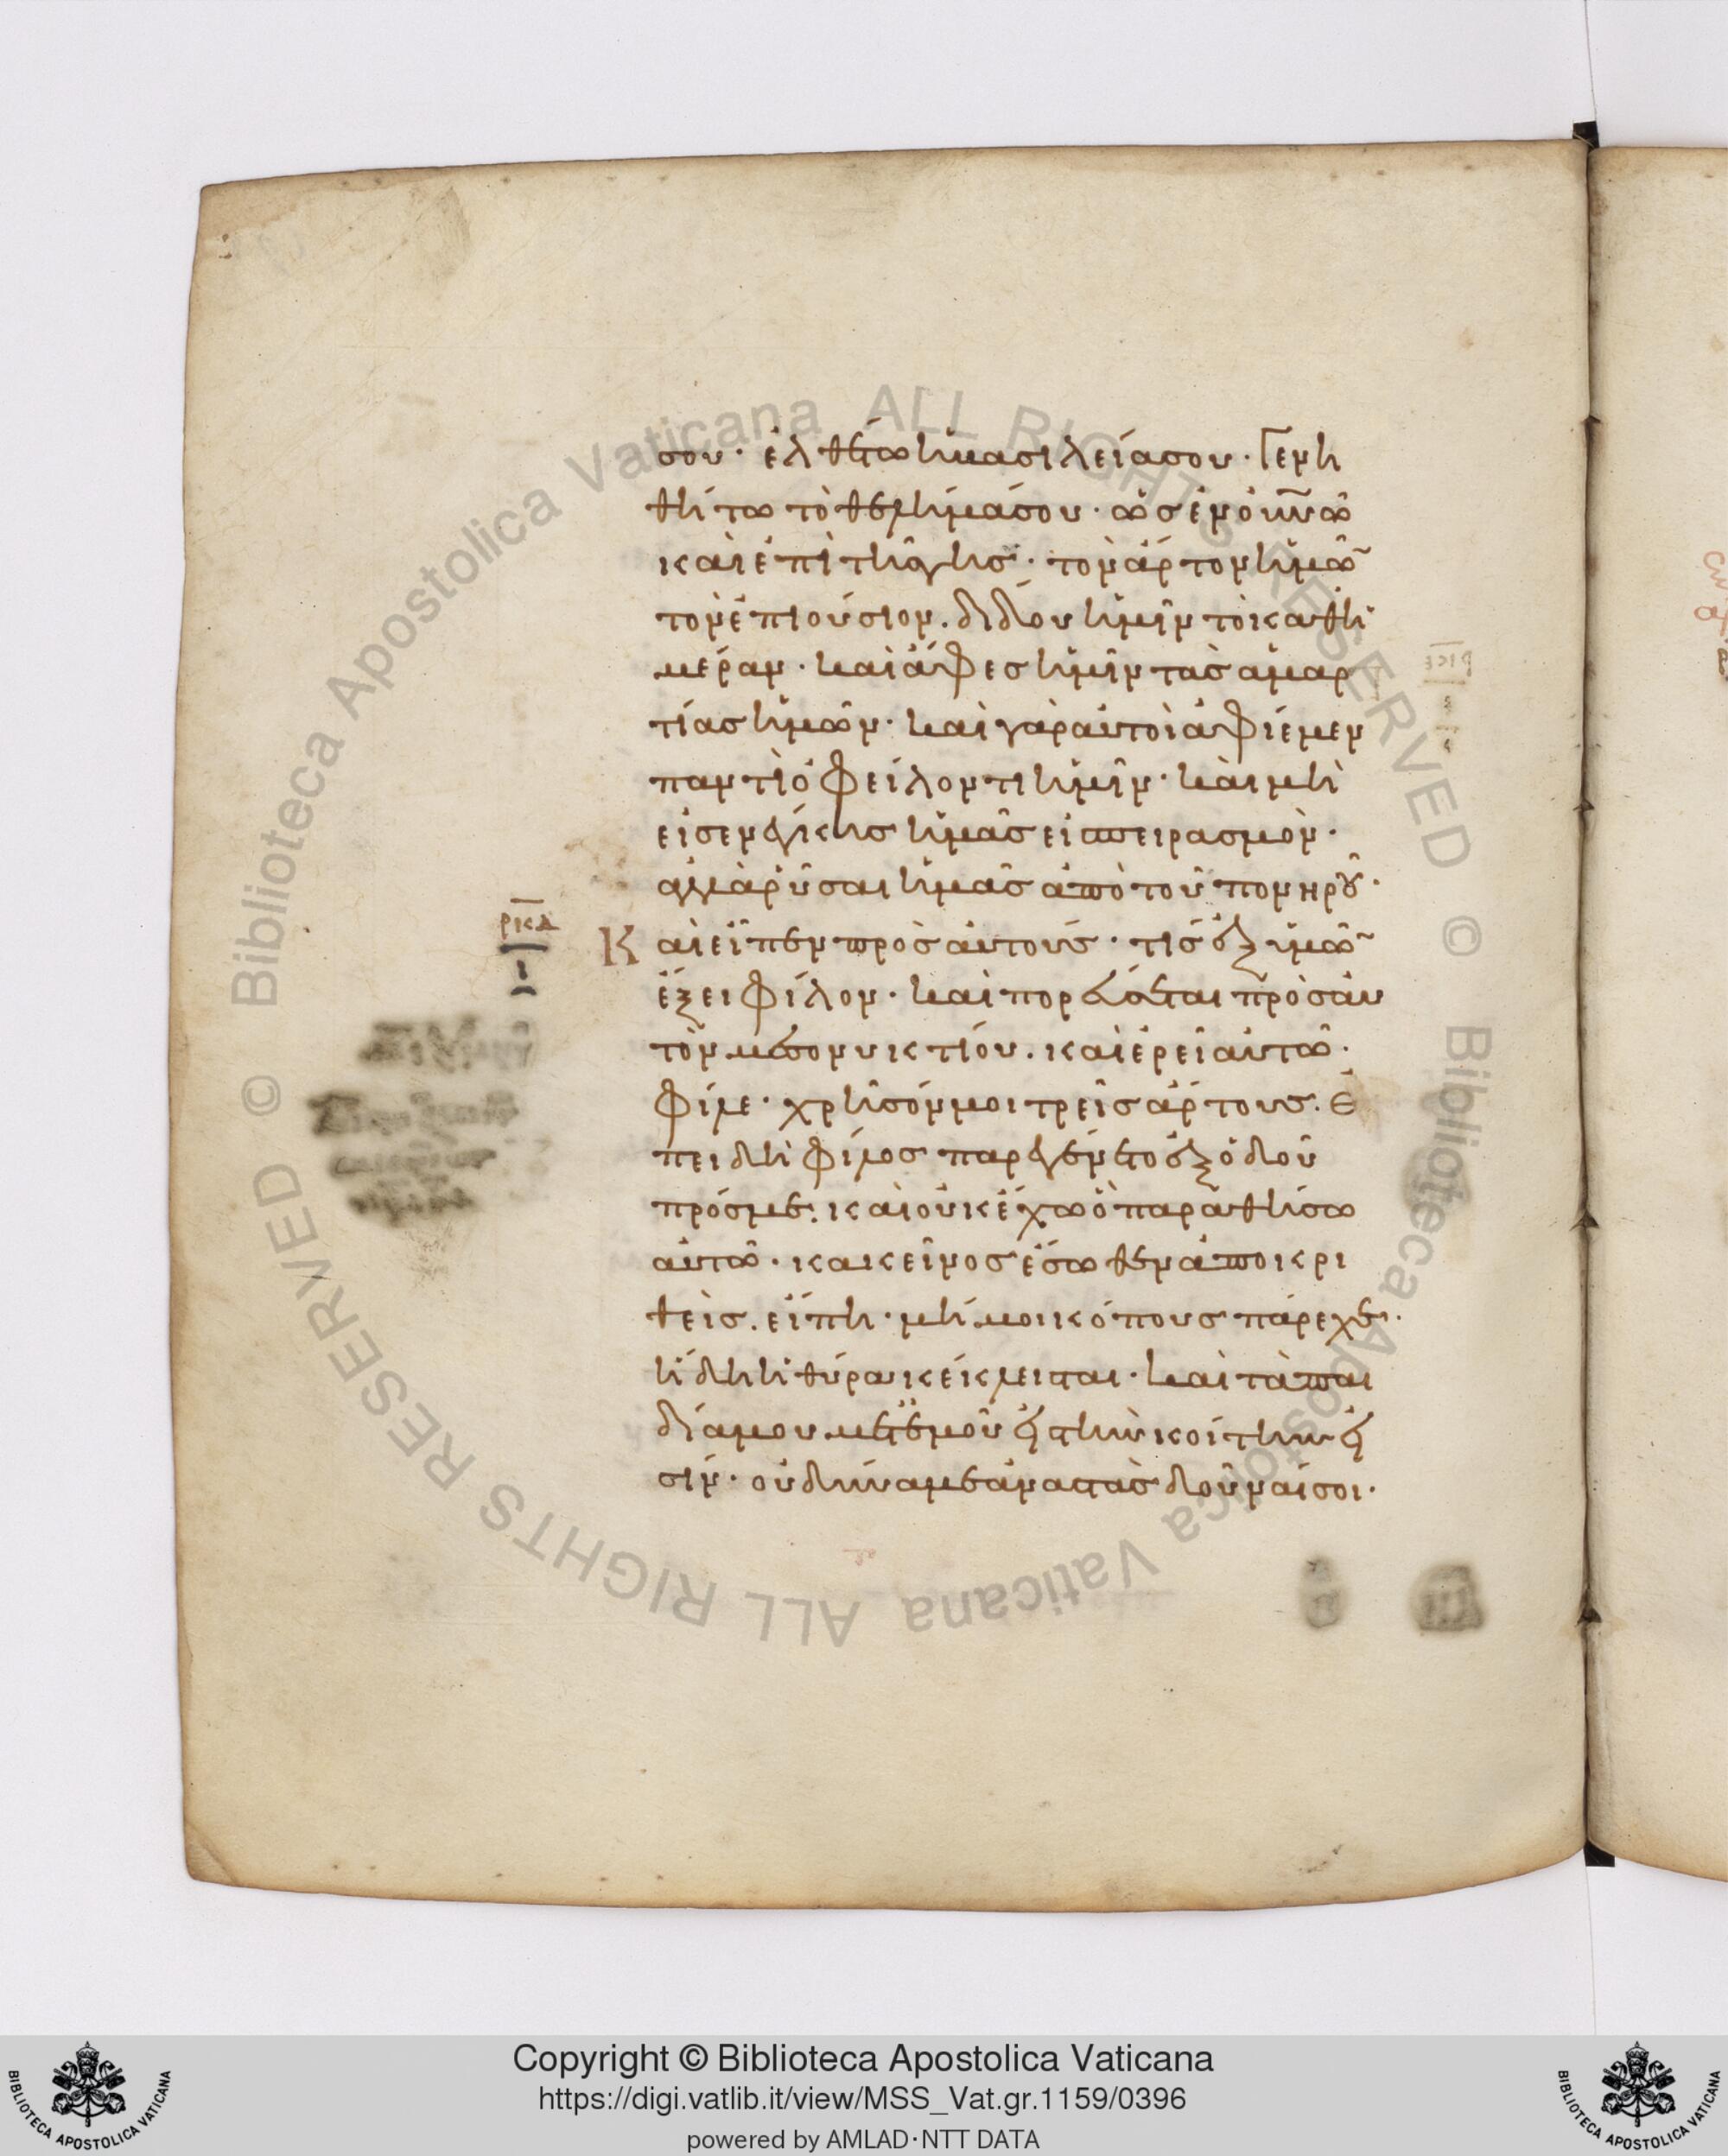 σου· ἐλθέτω ἡ βασιλεία σου· Γενη
θήτω τὸ θέλημά σου· ὡς ἐν οὐνῶ
καὶ ἐπὶ τῆς γῆς· τὸν ἄρτον ἡμῶ
τὸν ἐπιούσιον. δίδου ἡμῖν τὸ καθη
μέραν· καὶ ἄφες ἡμῖν τὰς ἁμαρ
τίας ἡμῶν· καὶ γὰρ αὐτοὶ ἀφίεμεν
παντὶ ὀφείλοντι ἡμῖν· καὶ μὴ
εἰσενέγκης ἡμᾶς εἰ πειρασμόν·
ἀλλὰ ῥῦσαι ἡμᾶς ἀπὸ τοῦ πονηροῦ·
ρκδ
Και εἶπεν πρὸς αὐτούς· τίς ἐξ ὑμῶ
ι
ἕξει φίλον· καὶ πορεύσεται πρὸς αὐ
τὸν μεσονυκτίου. καὶ ἐρεῖ αὐτῶ·
φίλε· χρῆσόν μοι τρεῖς ἄρτους. ἐ
πειδὴ φίλος παρεγένετο ἐξ ὁδοῦ
πρός με· καὶ οὐκ ἔχω ὃ παραθήσω
αὐτῶ· κακεῖνος ἔσωθεν ἀποκρι
θεὶς. εἴπη· μή μοι κόπους πάρεχε·
ἤδη ἡ θύρα κέκλειται· καὶ τὰ παι
δία μου μετ' ἐμοῦ εἰς τὴν κοίτην εἰ
σίν· οὐ δύναμαι ἀναστὰς δοῦναί σοι·
Biblioteca Apostolica Vaticana ALL RIGHTS RESERVED ©
Biblioteca Apostolica Vaticana ALL RIGHTS RESERVED ©
Copyright © Biblioteca Apostolica Vaticana
https://digi.vatlib.it/view/MSS_Vat.gr.1159/0396
powered by AMLAD·NTT DATA
BIBLIOTECA APOSTOLICA VATICANA
BIBLIOTECA APOSTOLICA VATICANA